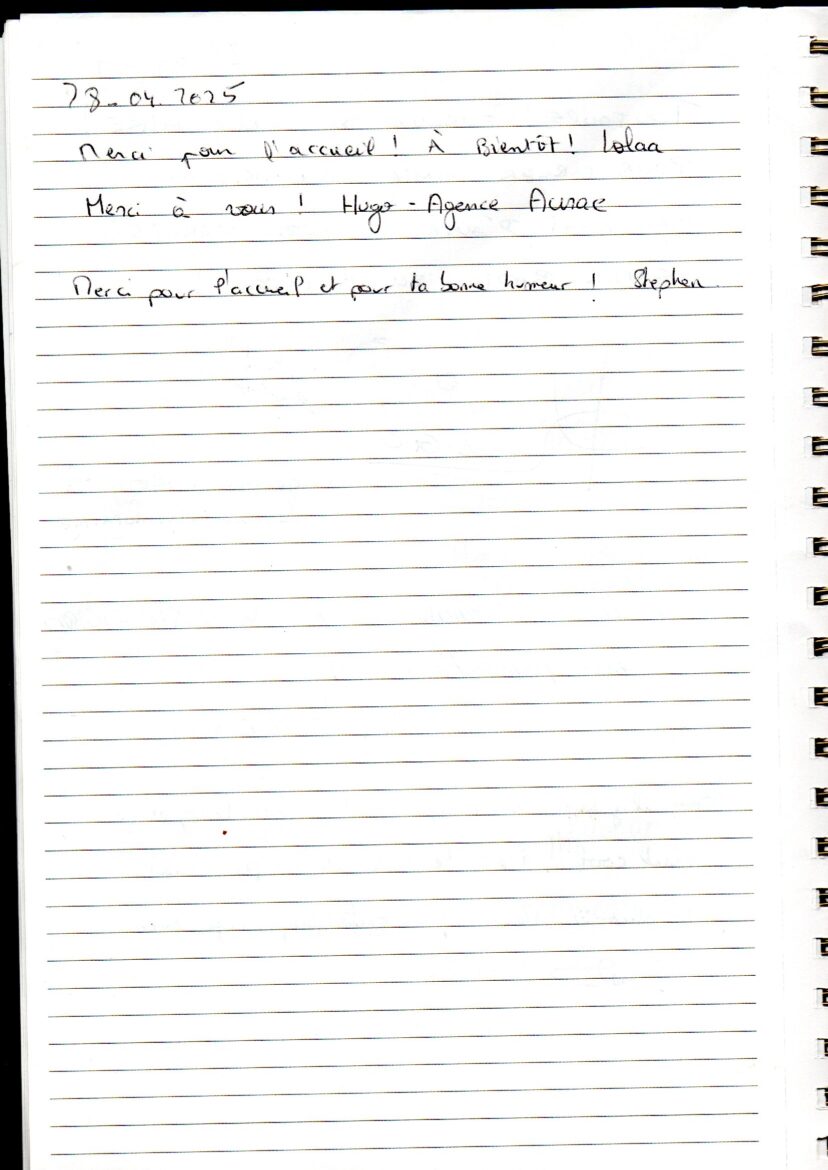 28-04.2025
Merci pour l'accueil ! À Bientôt ! Lolaa
Merci à vous ! Hugo - Agence Aurac
Merci pour l'accueil et pour ta bonne humeur ! Stephen